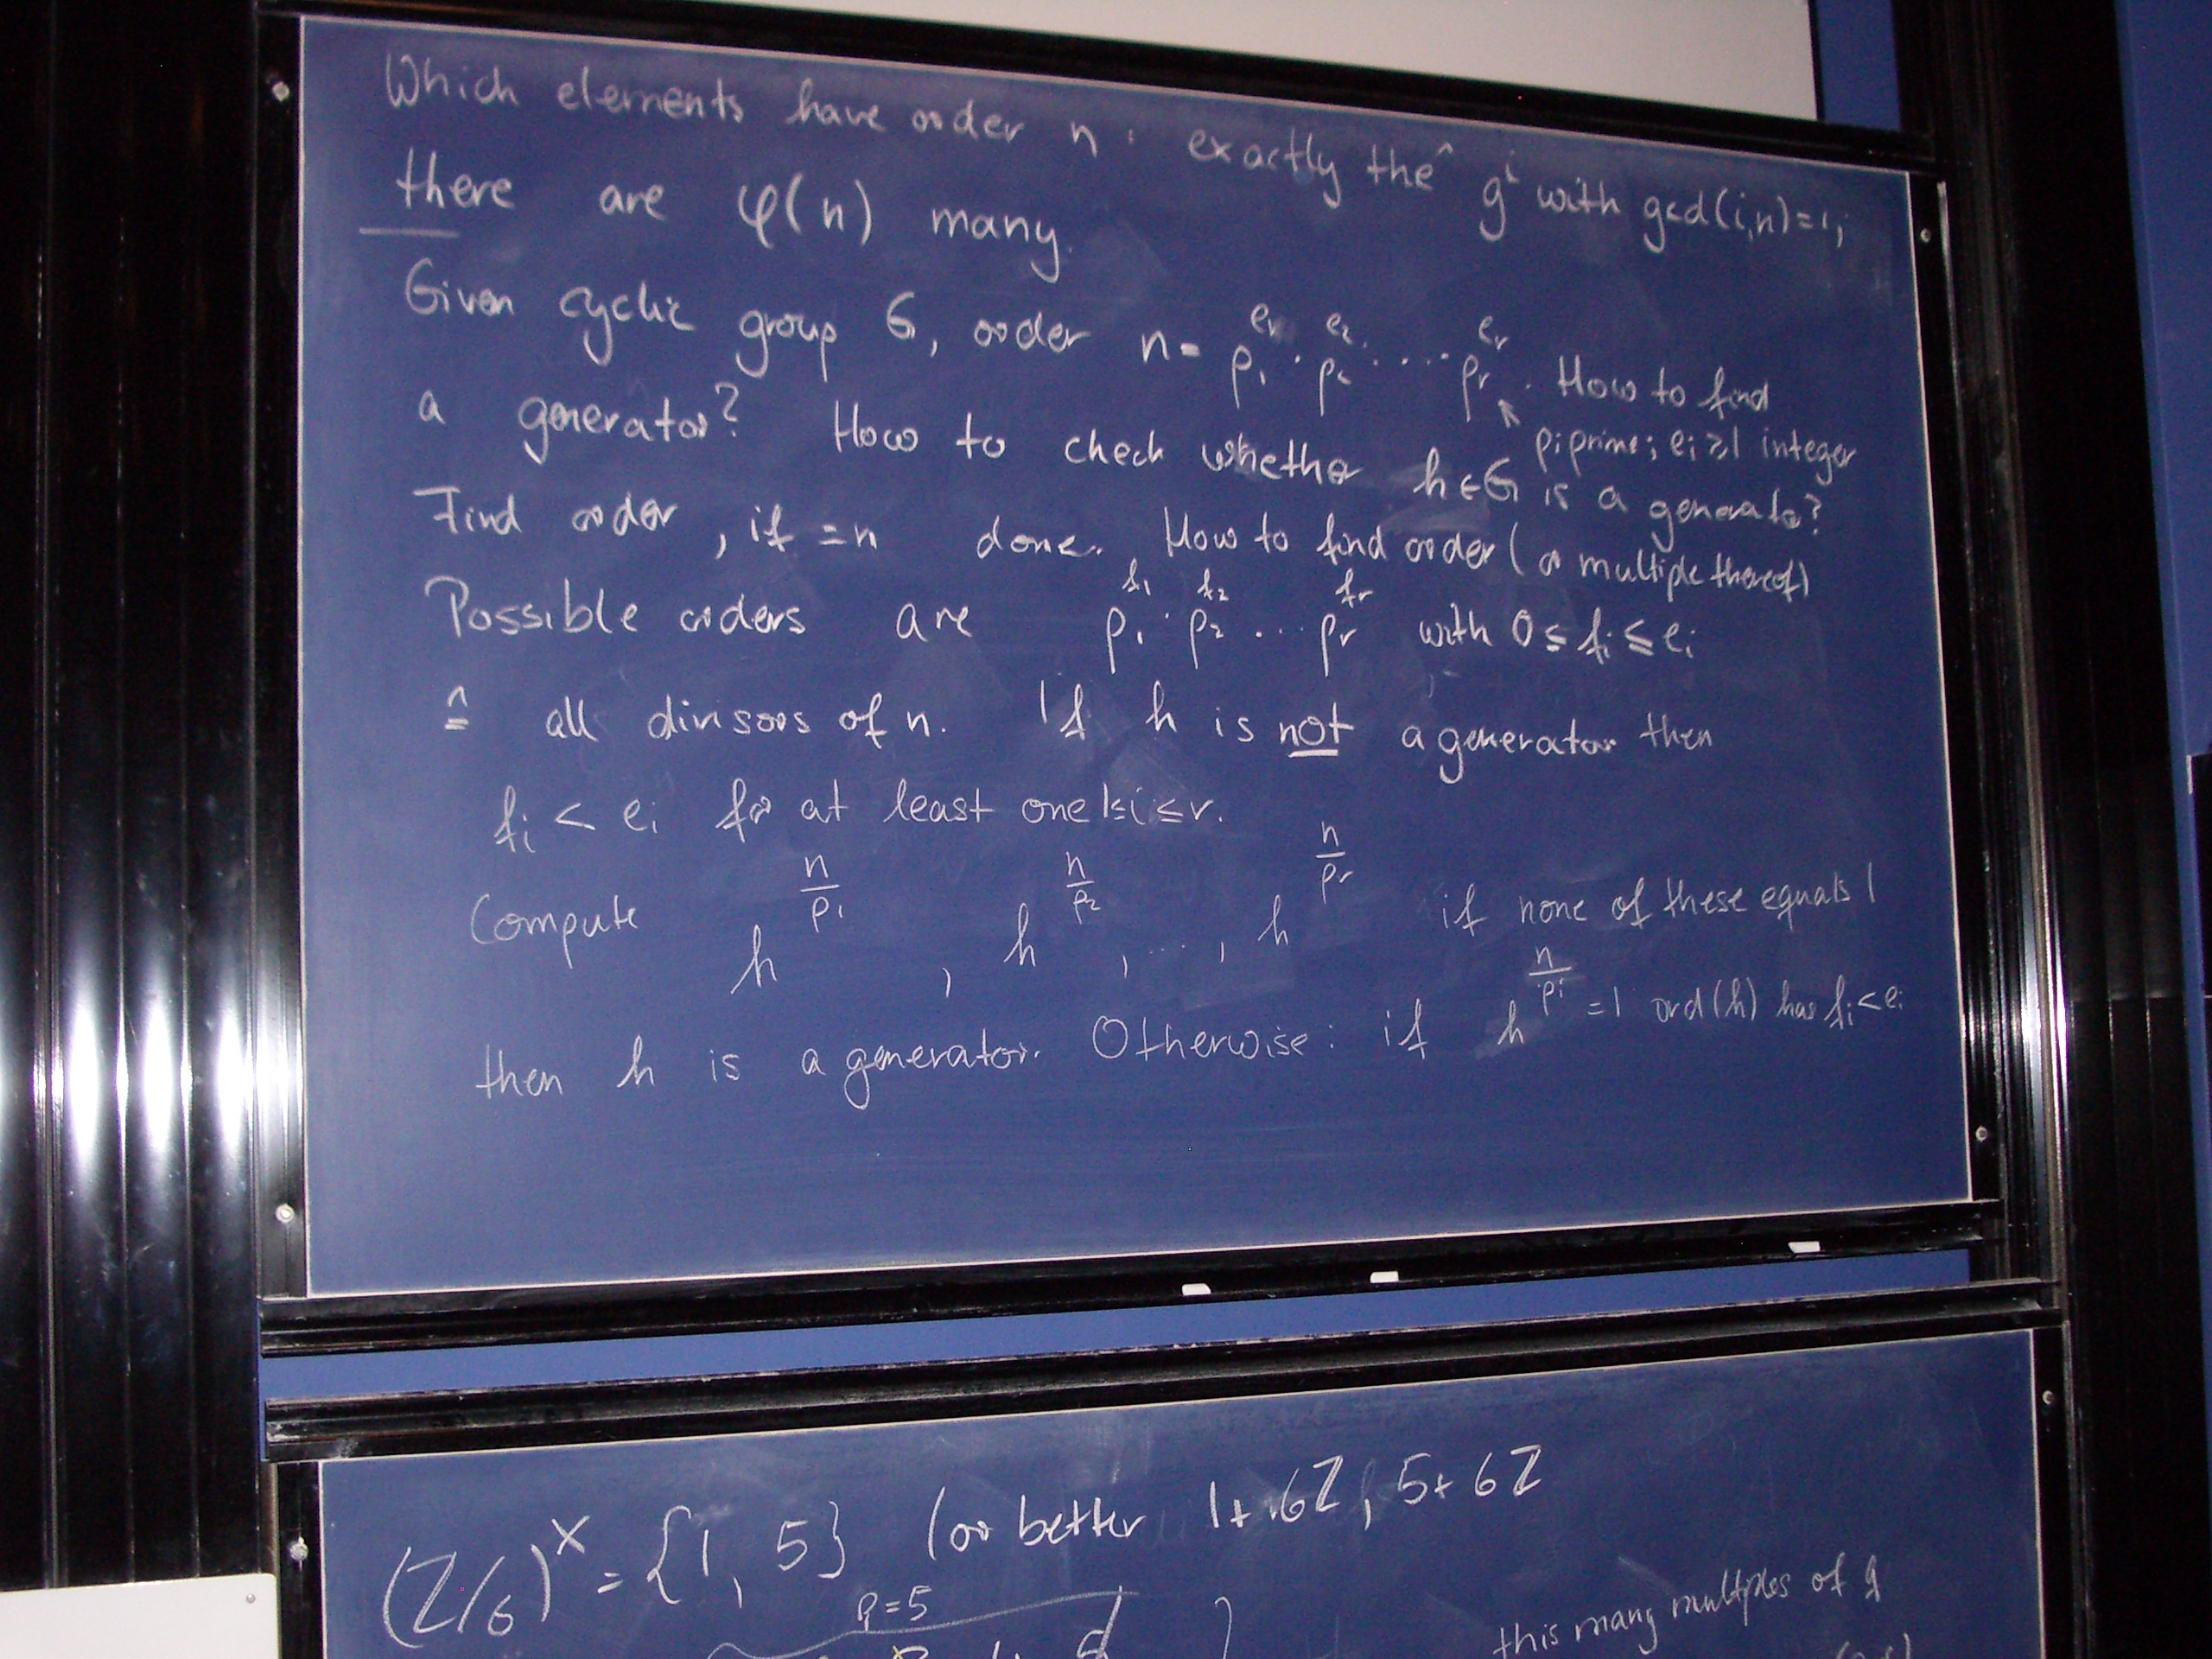 Which elements have order n : exactly the^ gⁱ with gcd(i,n)=1;
there are φ(n) many.
Given cyclic group G, order n = p₁^e₁ · p₂^e₂ · .... pᵣ^eᵣ . How to find
pᵢ prime; eᵢ ≥ 1 integer
a generator? How to check whether h ∈ G is a generator?
Find order, if = n done. How to find order (or multiple thereof)
Possible orders are p₁^f₁ · p₂^f₂ ... pᵣ^fᵣ with 0 ≤ fᵢ ≤ eᵢ
≙ all divisors of n. If h is not a generator then
fᵢ < eᵢ for at least one 1≤i≤r.
Compute h^(n/p₁) , h^(n/p₂) , ... , h^(n/pᵣ) if none of these equals 1
then h is a generator. Otherwise: if h^(n/pᵢ) = 1 ord(h) has fᵢ < eᵢ
(Z/6)^× = {1, 5} (or better 1+6Z, 5+6Z
p=5
this many multiples of q